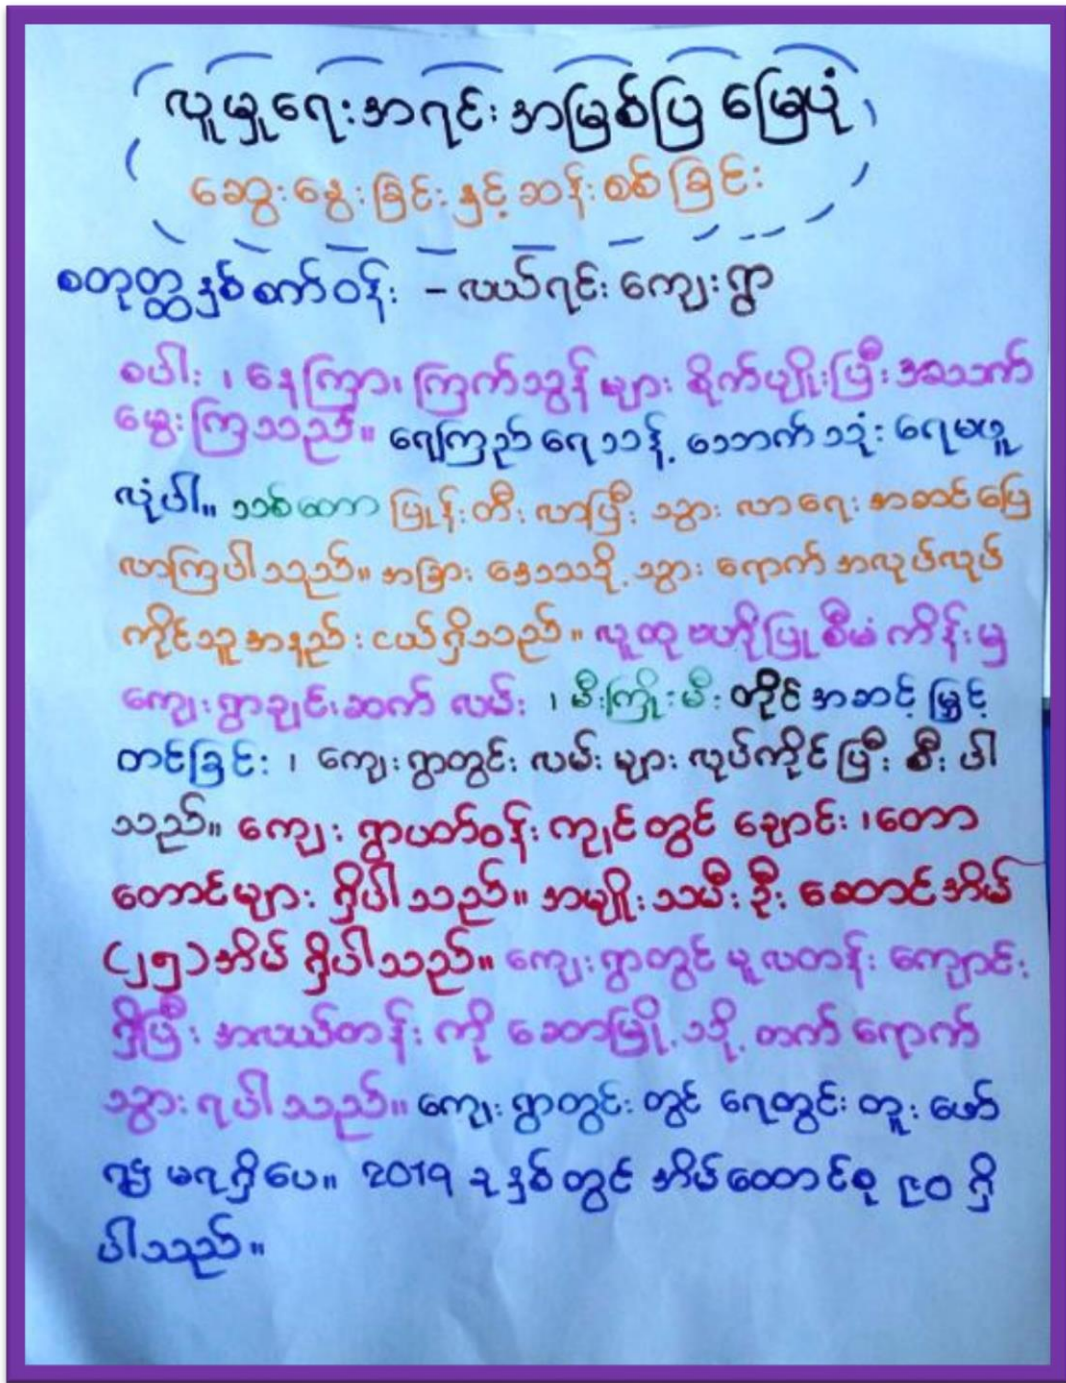 လူမှုရေးအရင်းအမြစ်ပြ မြေပုံ
ဆွေးနွေးခြင်းနှင့်ဆန်းစစ်ခြင်း
စတုတ္ထနှစ်စက်ဝန်း - လယ်ရင်းကျေးရွာ
စပါး၊ နေကြာ၊ ကြက်သွန်များ စိုက်ပျိုးပြီးအသက်
မွေးကြသည်။ ရေကြည်ရေသန့် သောက်သုံးရေမဖူ
လုံပါ။ သစ်တော ပြုန်းတီးလာပြီး သွားလာရေးအဆင်ပြေ
လာကြပါသည်။ အခြားဒေသသို့ သွားရောက်အလုပ်လုပ်
ကိုင်သူအနည်းငယ်ရှိသည်။ လူထုဗဟိုပြုစီမံကိန်းမှ
ကျေးရွာချင်းဆက်လမ်း၊ မီးကြိုးမီးတိုင်အဆင့်မြှင့်
တင်ခြင်း၊ ကျေးရွာတွင်းလမ်းများလုပ်ကိုင်ပြီးစီးပါ
သည်။ ကျေးရွာပတ်ဝန်းကျင်တွင် ချောင်း၊တော
တောင်များရှိပါသည်။ အမျိုးသမီးဦးဆောင်အိမ်
(၂၅)အိမ်ရှိပါသည်။ ကျေးရွာတွင် မူလတန်းကျောင်း
ရှိပြီး အလယ်တန်းကို ဆောမြို့သို့ တက်ရောက်
သွားရပါသည်။ ကျေးရွာတွင်းတွင် ရေတွင်းတူးဖော်
၍မရရှိပေ။ 2019 ခုနှစ်တွင် အိမ်ထောင်စု ၉၀ ရှိ
ပါသည်။